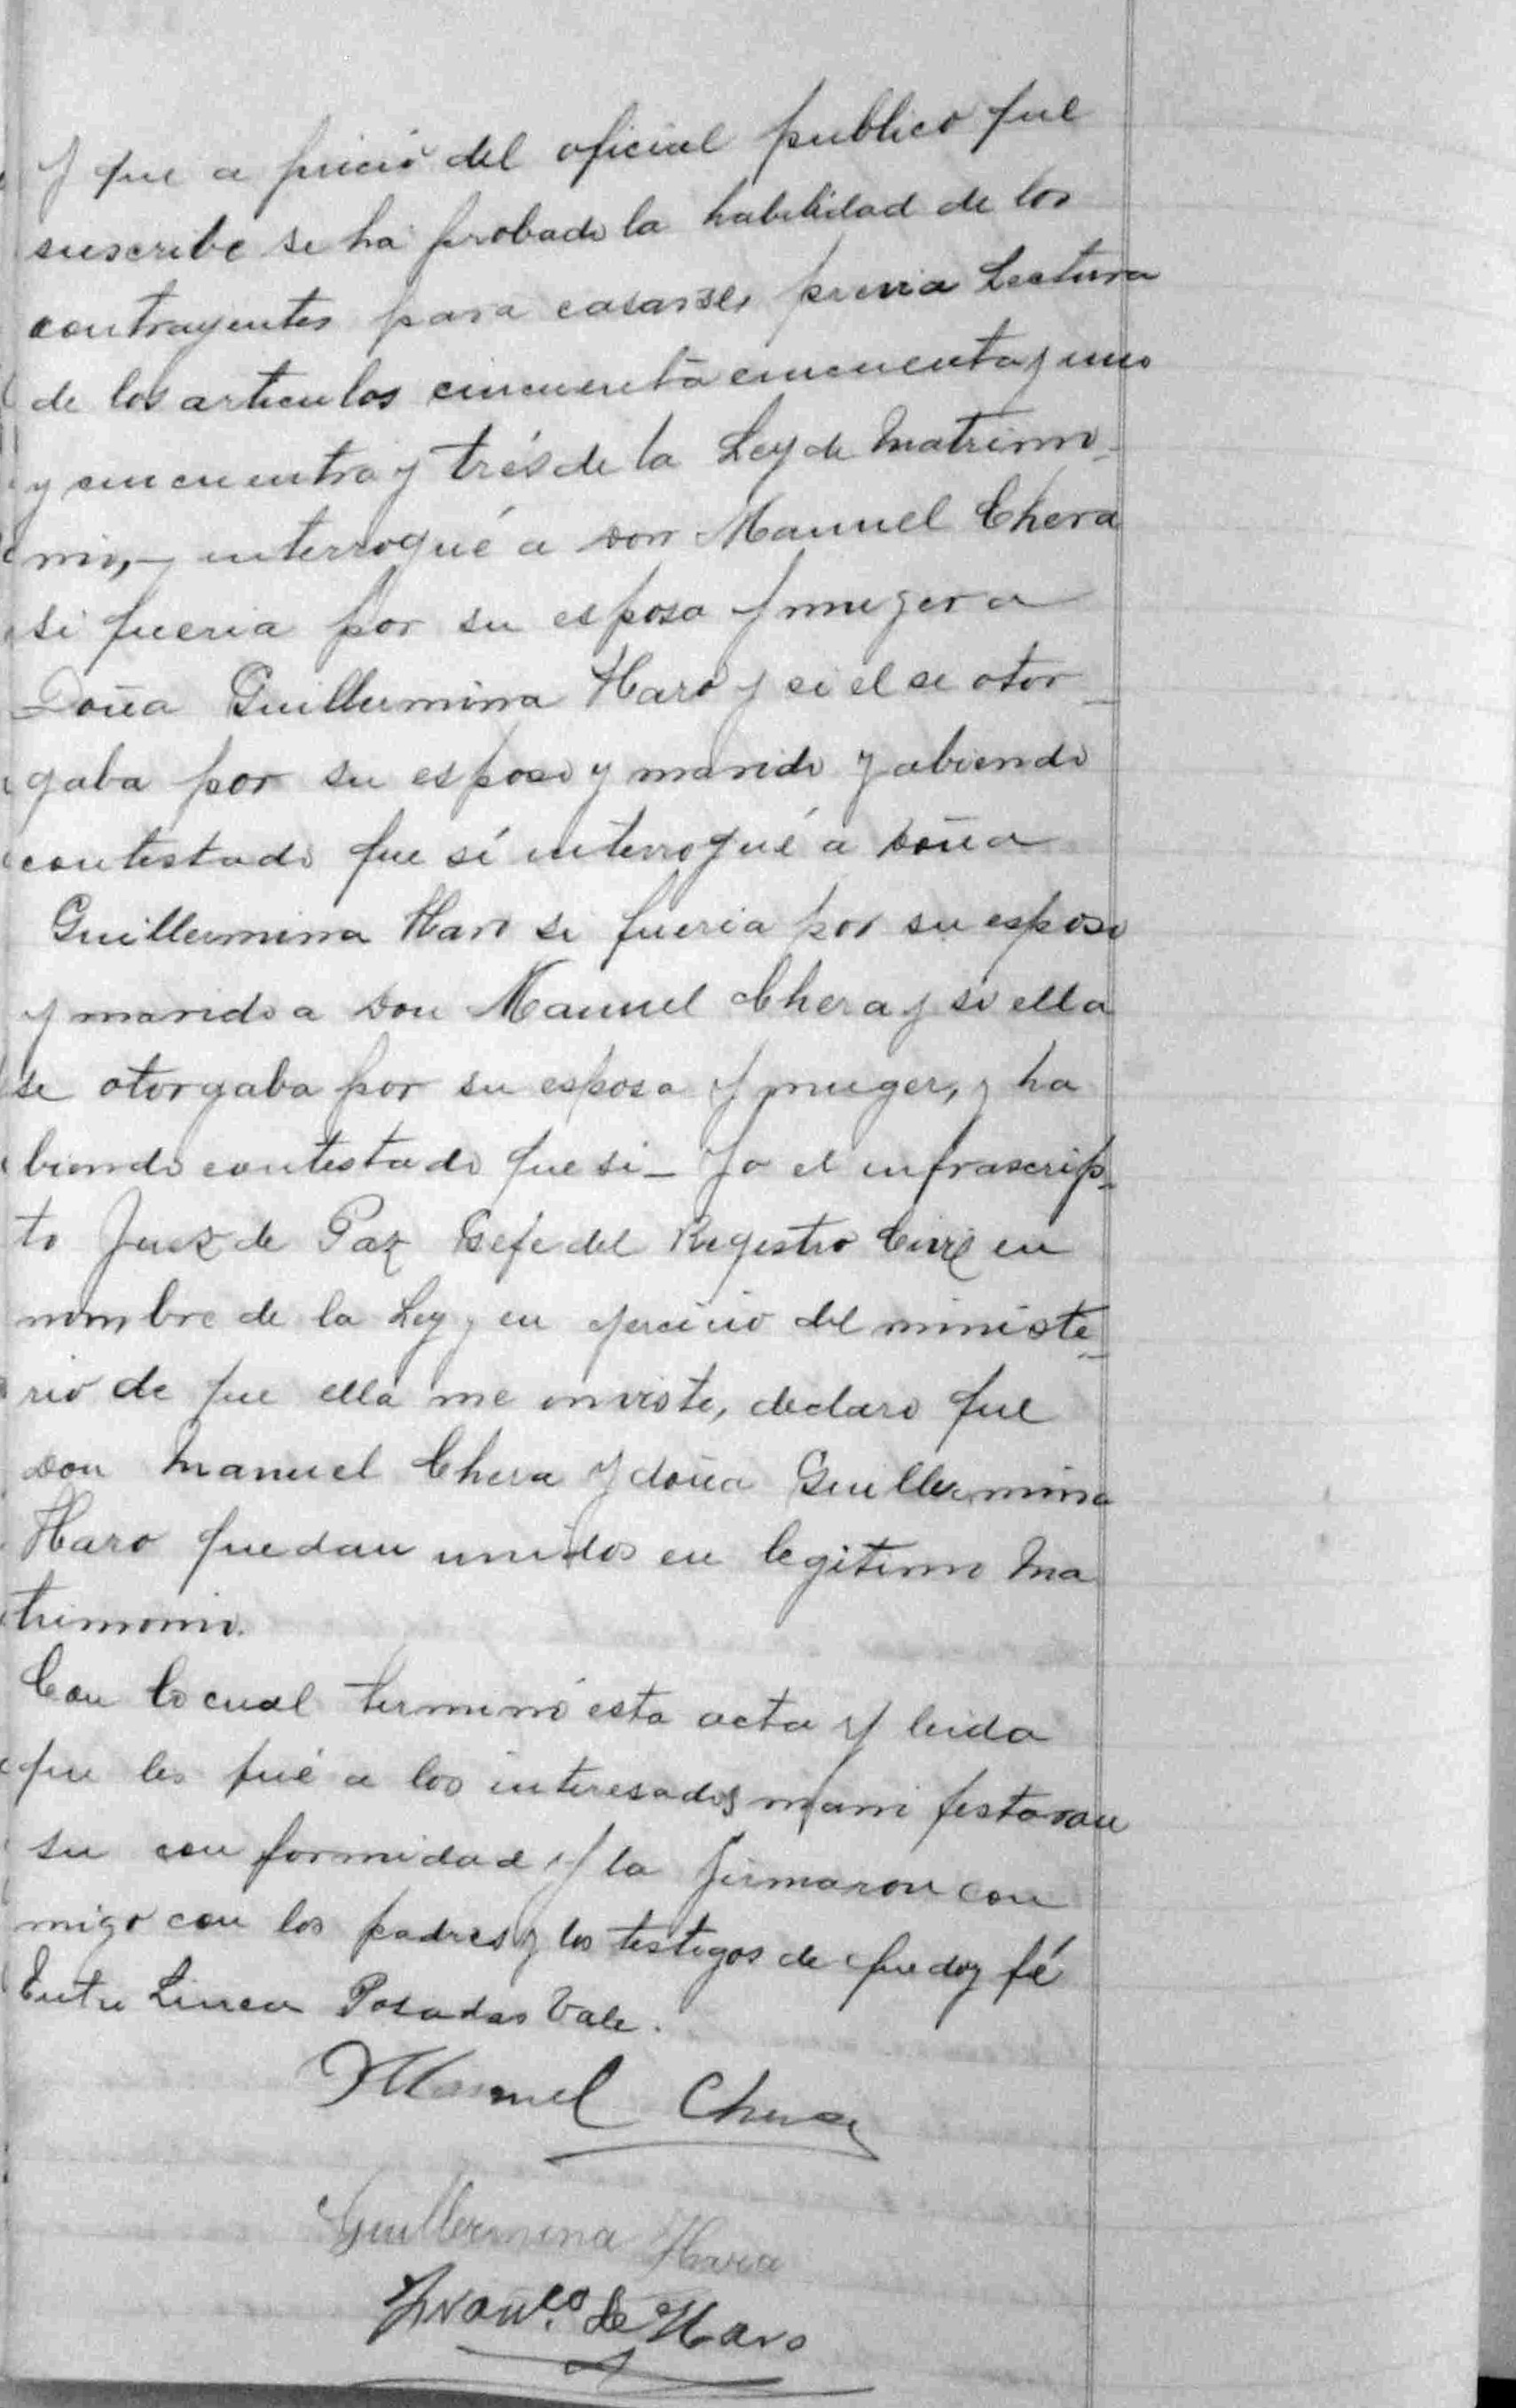 y que a juicio del oficial publico que
suscribe se ha probado la habilidad de los
contrayentes para casarse, previa Lectura
de los articulos cincuenta cincuenta y uno
y cincuenta y trés de la Ley de Matrimo-
nio,- interrogué a Don Manuel Chera
si queria por su esposa y muger a
Doña Guillermina Haro y si el se otor-
gaba por su esposo y marido y abiendo
contestado que sí interrogué a Doña
Guillermina Haro si queria por su esposo
y marido a Don Manuel Chera y si ella
se otorgaba por su esposa y muger, y ha
biendo contestado que si- Yo el infrascrip-
to Juez de Paz Gefe del Registro Civil en
nombre de la Ley y en ejercicio del ministe-
rio de que ella me inviste, declaro que
Don Manuel Chera y doña Guillermina
Haro quedan unidos en legitimo Ma
trimonio.
Con lo cual terminó esta acta y leida
que les fué a los interesados manifestaron
su conformidad y la firmaron con
migo con los padres y los testigos de que doy fé
Entre Linea Posadas Vale.
Manuel Chera
Guillermina Haro
Franco. de Haro